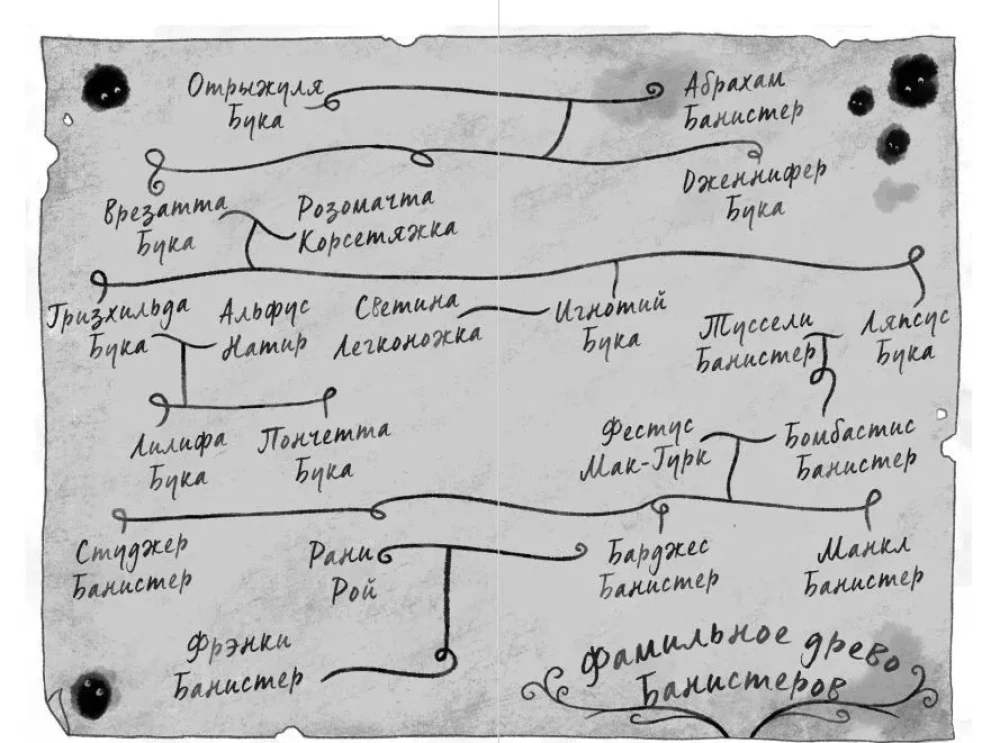 Отрыжуля
Бука
Абрахам
Банистер
Врезатта
Бука
Розомачта
Корсетяжка
Дженнифер
Бука
Гризхильда
Бука
Альфус
Натир
Светина
Легконожка
Игнотий
Бука
Туссели
Банистер
Ляпсус
Бука
Лилифа
Бука
Пончетта
Бука
Фестус
Мак-Гурк
Бомбастис
Банистер
Студжер
Банистер
Рани
Рой
Барджес
Банистер
Манкл
Банистер
Фрэнки
Банистер
Фамильное древо
Банистеров